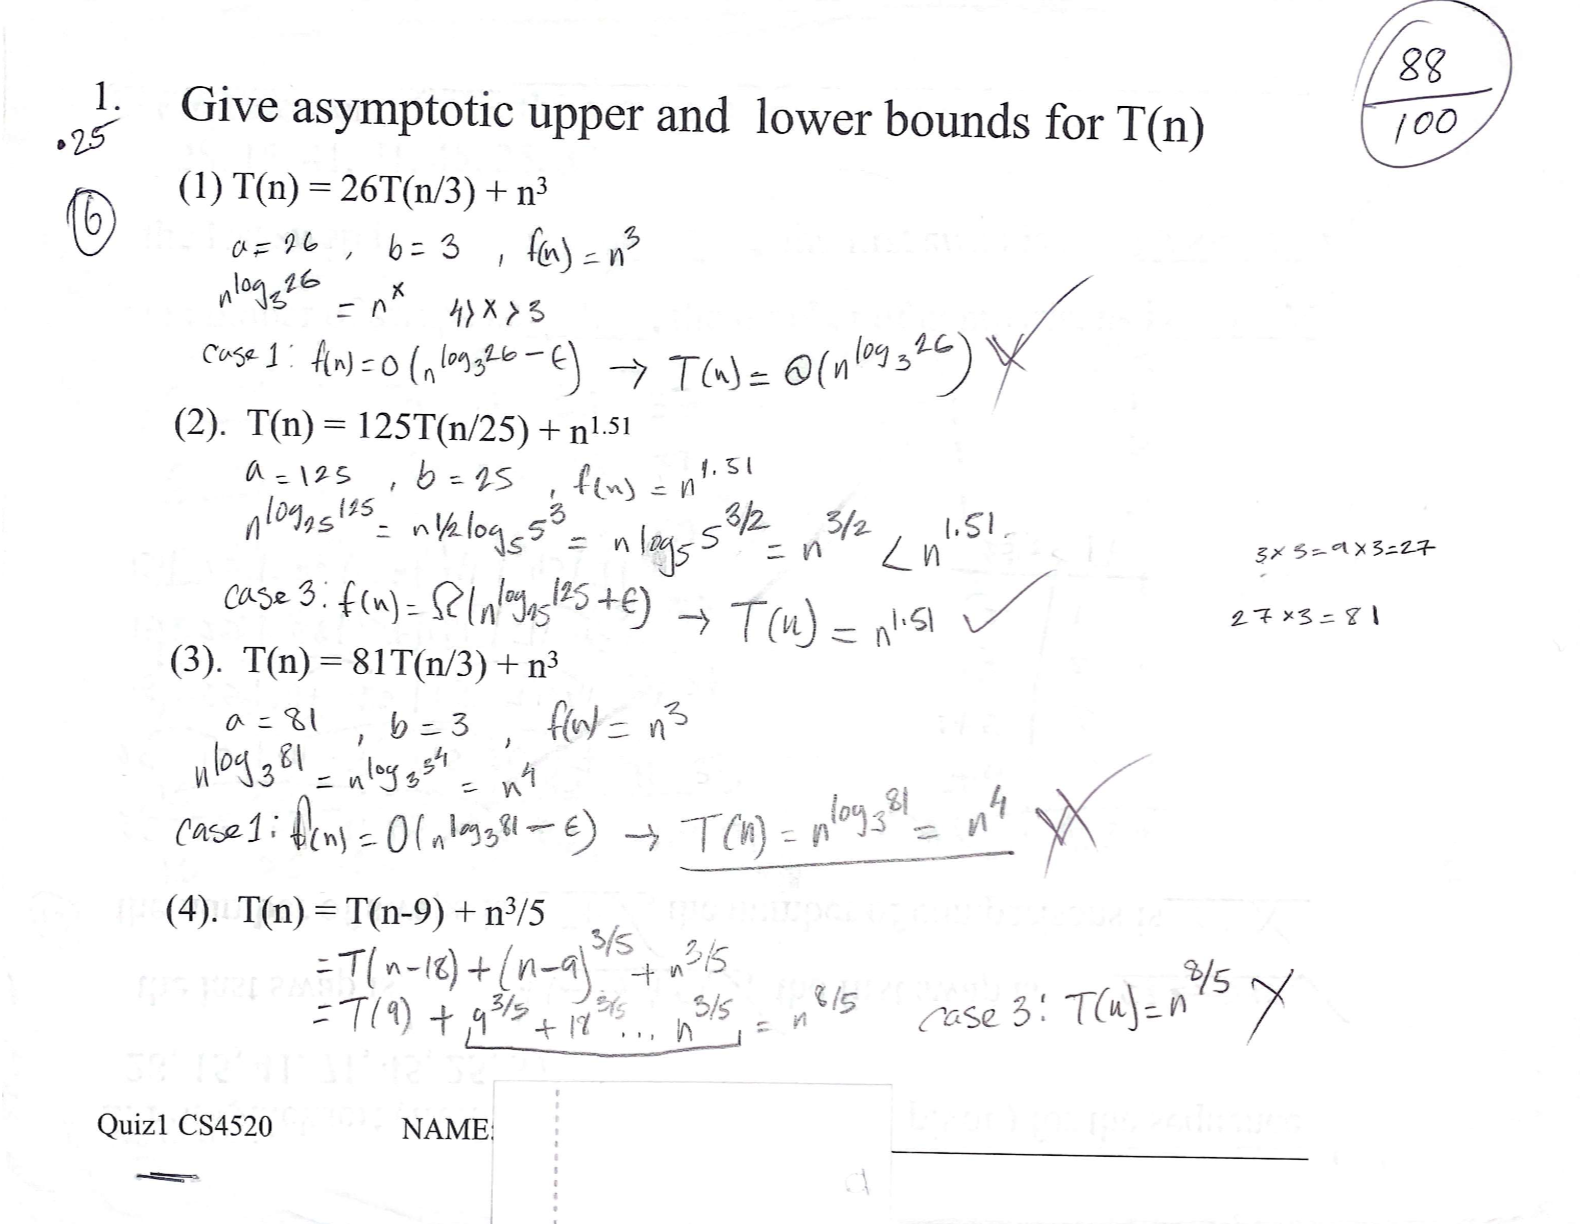 88
100
1. Give asymptotic upper and lower bounds for T(n)
.25
16
(1) T(n) = 26T(n/3) + n³
a = 26 , b = 3 , f(n) = n³
n^log₃26 = n^x 4 > x > 3
case 1: f(n) = O(n^log₃26 - ϵ) → T(n) = Θ(n^log₃26)
(2). T(n) = 125T(n/25) + n^1.51
a = 125 , b = 25 , f(n) = n^1.51
n^log₂₅125 = n^½ log₅5³ = n^log₅5^3/2 = n^3/2 < n^1.51
3 x 3 = 9 x 3 = 27
case 3: f(n) = Ω(n^log₂₅125 + ϵ) → T(n) = n^1.51 ✓
27 x 3 = 81
(3). T(n) = 81T(n/3) + n³
a = 81 , b = 3 , f(n) = n³
n^log₃81 = n^log₃3⁴ = n⁴
case 1: f(n) = O(n^log₃81 - ϵ) → T(n) = n^log₃81 = n⁴
(4). T(n) = T(n-9) + n³/5
= T(n-18) + (n-9)^3/5 + n^3/5
= T(9) + 9^3/5 + 18^3/5 ... n^3/5 = n^8/5 case 3: T(n) = n^8/5
Quiz1 CS4520 NAME: